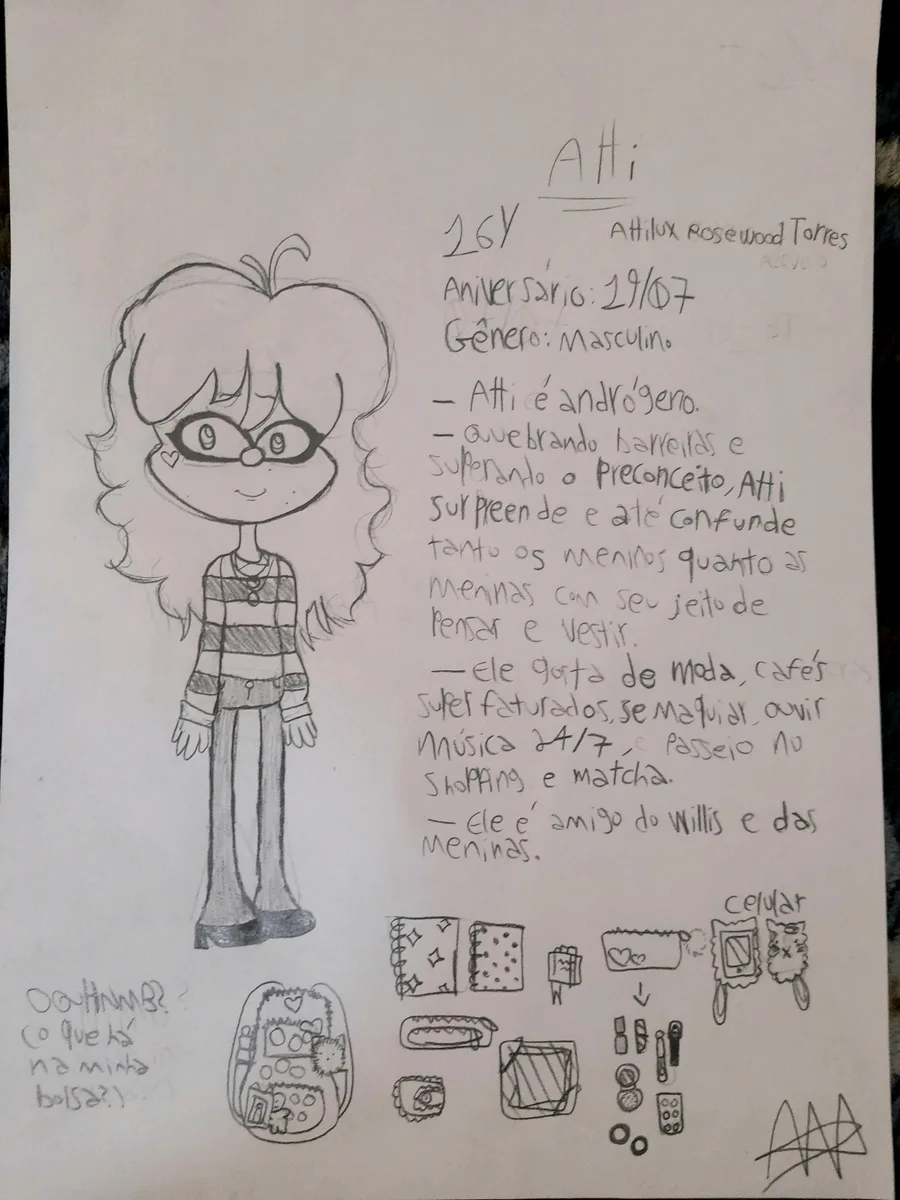 Atti
16Y
Attilux Rosewood Torres
Aniversário: 19/07
Gênero: Masculino
— Atti é andrógeno.
— Quebrando barreiras e
superando o Preconceito, Atti
surpreende e até confunde
tanto os meninos quanto as
meninas com seu jeito de
Pensar e vestir.
— Ele gosta de moda, cafés
super faturados, se maquiar, ouvir
música 24/7, passeio no
shopping e matcha.
— Ele é amigo do Willis e das
meninas.
celular
OQHNMB?
(o que há
na minha
bolsa?)